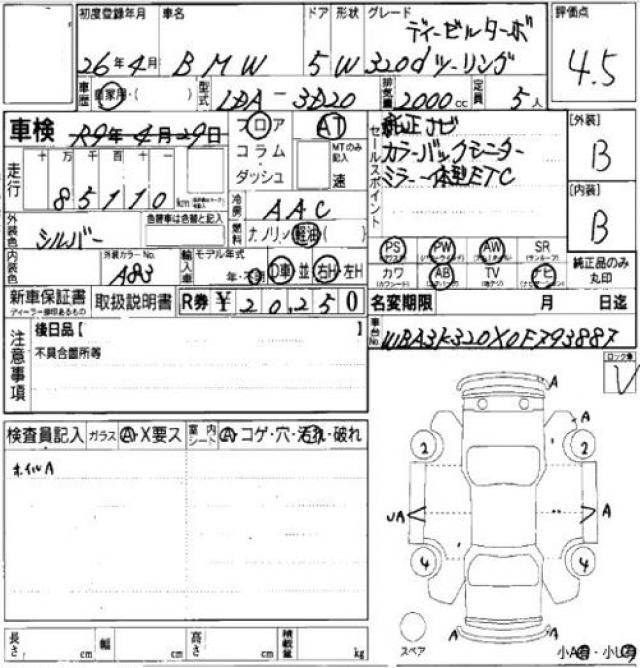 初度登録年月 車名 ドア 形状 グレード 評価点
26年4月 BMW 5 W ディーゼルターボ 320d ツーリング 4.5
車歴 自家用・( ) 型式 LDA-3D20 排気量 2000cc 定員 5人
車検 R9年4月29日 フロア AT
コラム MTのみ記入
ダッシュ 速
走行 十 万 千 百 十 一
85110 km
冷房 AAC
外装色 シルバー 色替車は色替と記入
燃料 ガソリン 軽油 ( )
内装色 外装カラーNo. A83
輸入車 モデル年式 年・不明 D車 並 右H・左H
セールスポイント
純正ナビ
カラーバックモニター
ミラー一体型ETC
[外装] B
[内装] B
PS PW AW SR (サンルーフ)
カワ AB TV ナビ
純正品のみ丸印
新車保証書 取扱説明書 R券 ¥20,250
ディーラー捺印あるもの
名変期限 月 日迄
注意事項
後日品【 】
不具合箇所等
車台No. WBA3K320X0F793887
検査員記入 ガラス A・X要ス 室内シート A・コゲ・穴・汚れ・破れ
ホイルA
A
A
2 2
UA A
4 4
A
A
スペア
小A有・小U有
長さ cm 幅 cm 高さ cm 積載量 kg